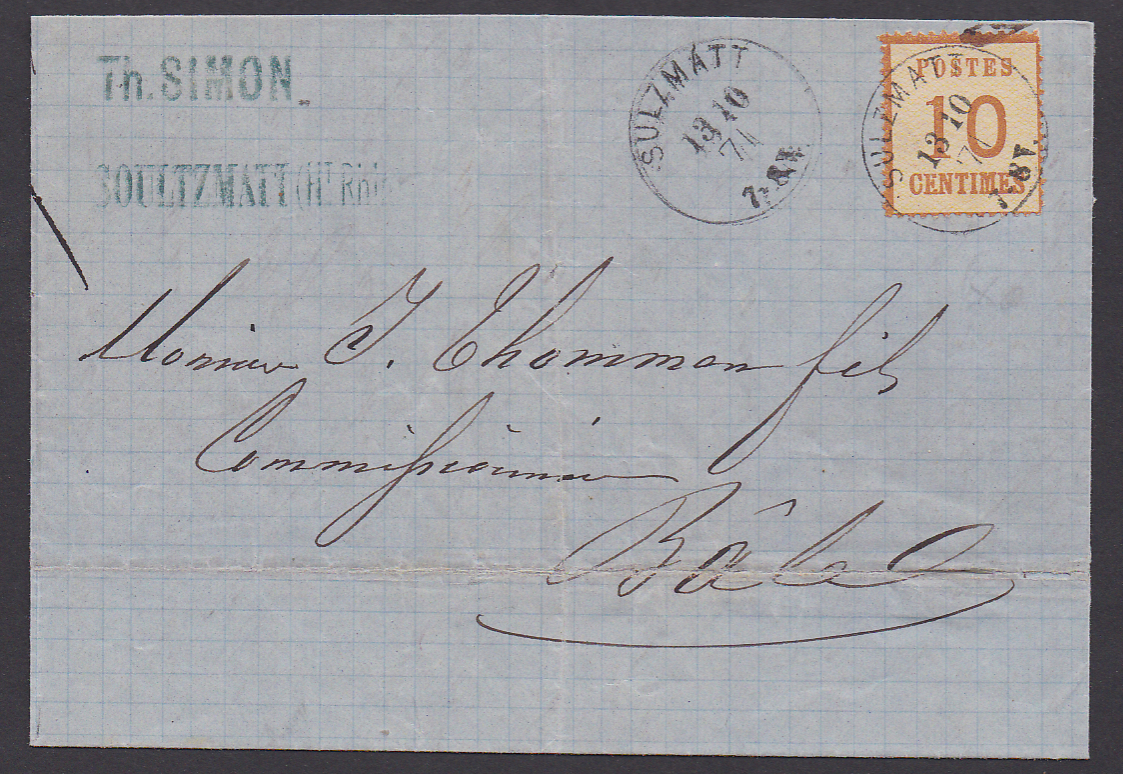 Th. SIMON
SOULTZMATT (Ht Rhin
SULZMATT
13 10
71
7-8 V.
POSTES
10
CENTIMES
SULZMATT
13 10
71
7-8 V.
Monsieur J. Thommen fils
Commissionnaire
Bâle